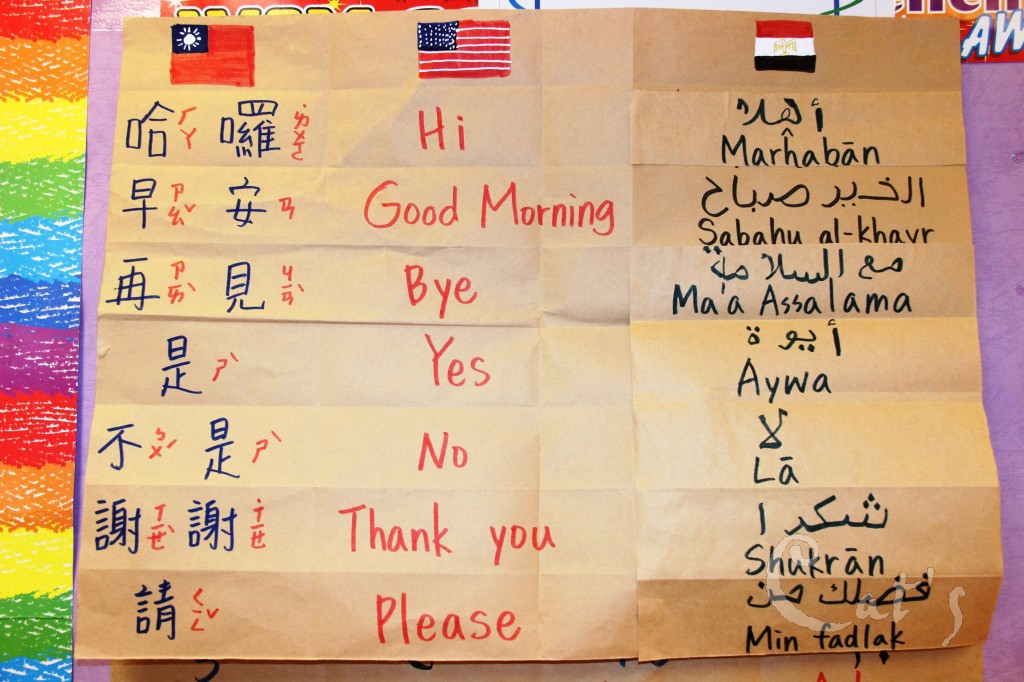 哈ㄏㄚ 囉˙ㄌㄨㄛ Hi أهلا
Marĥabān
早ㄗㄠˇ 安ㄢ Good Morning الخير صباح
Sabahu al-khayr
再ㄗㄞˋ 見ㄐㄧㄢˋ Bye مع السلامة
Ma'a Assalama
是ㄕˋ Yes أيوة
Aywa
不ㄅㄨˊ 是ㄕˋ No لا
Lā
謝ㄒㄧㄝˋ 謝˙ㄒㄧㄝ Thank you شكرا
Shukrān
請ㄑㄧㄥˇ Please فضلك من
Min fadlak
Cat's